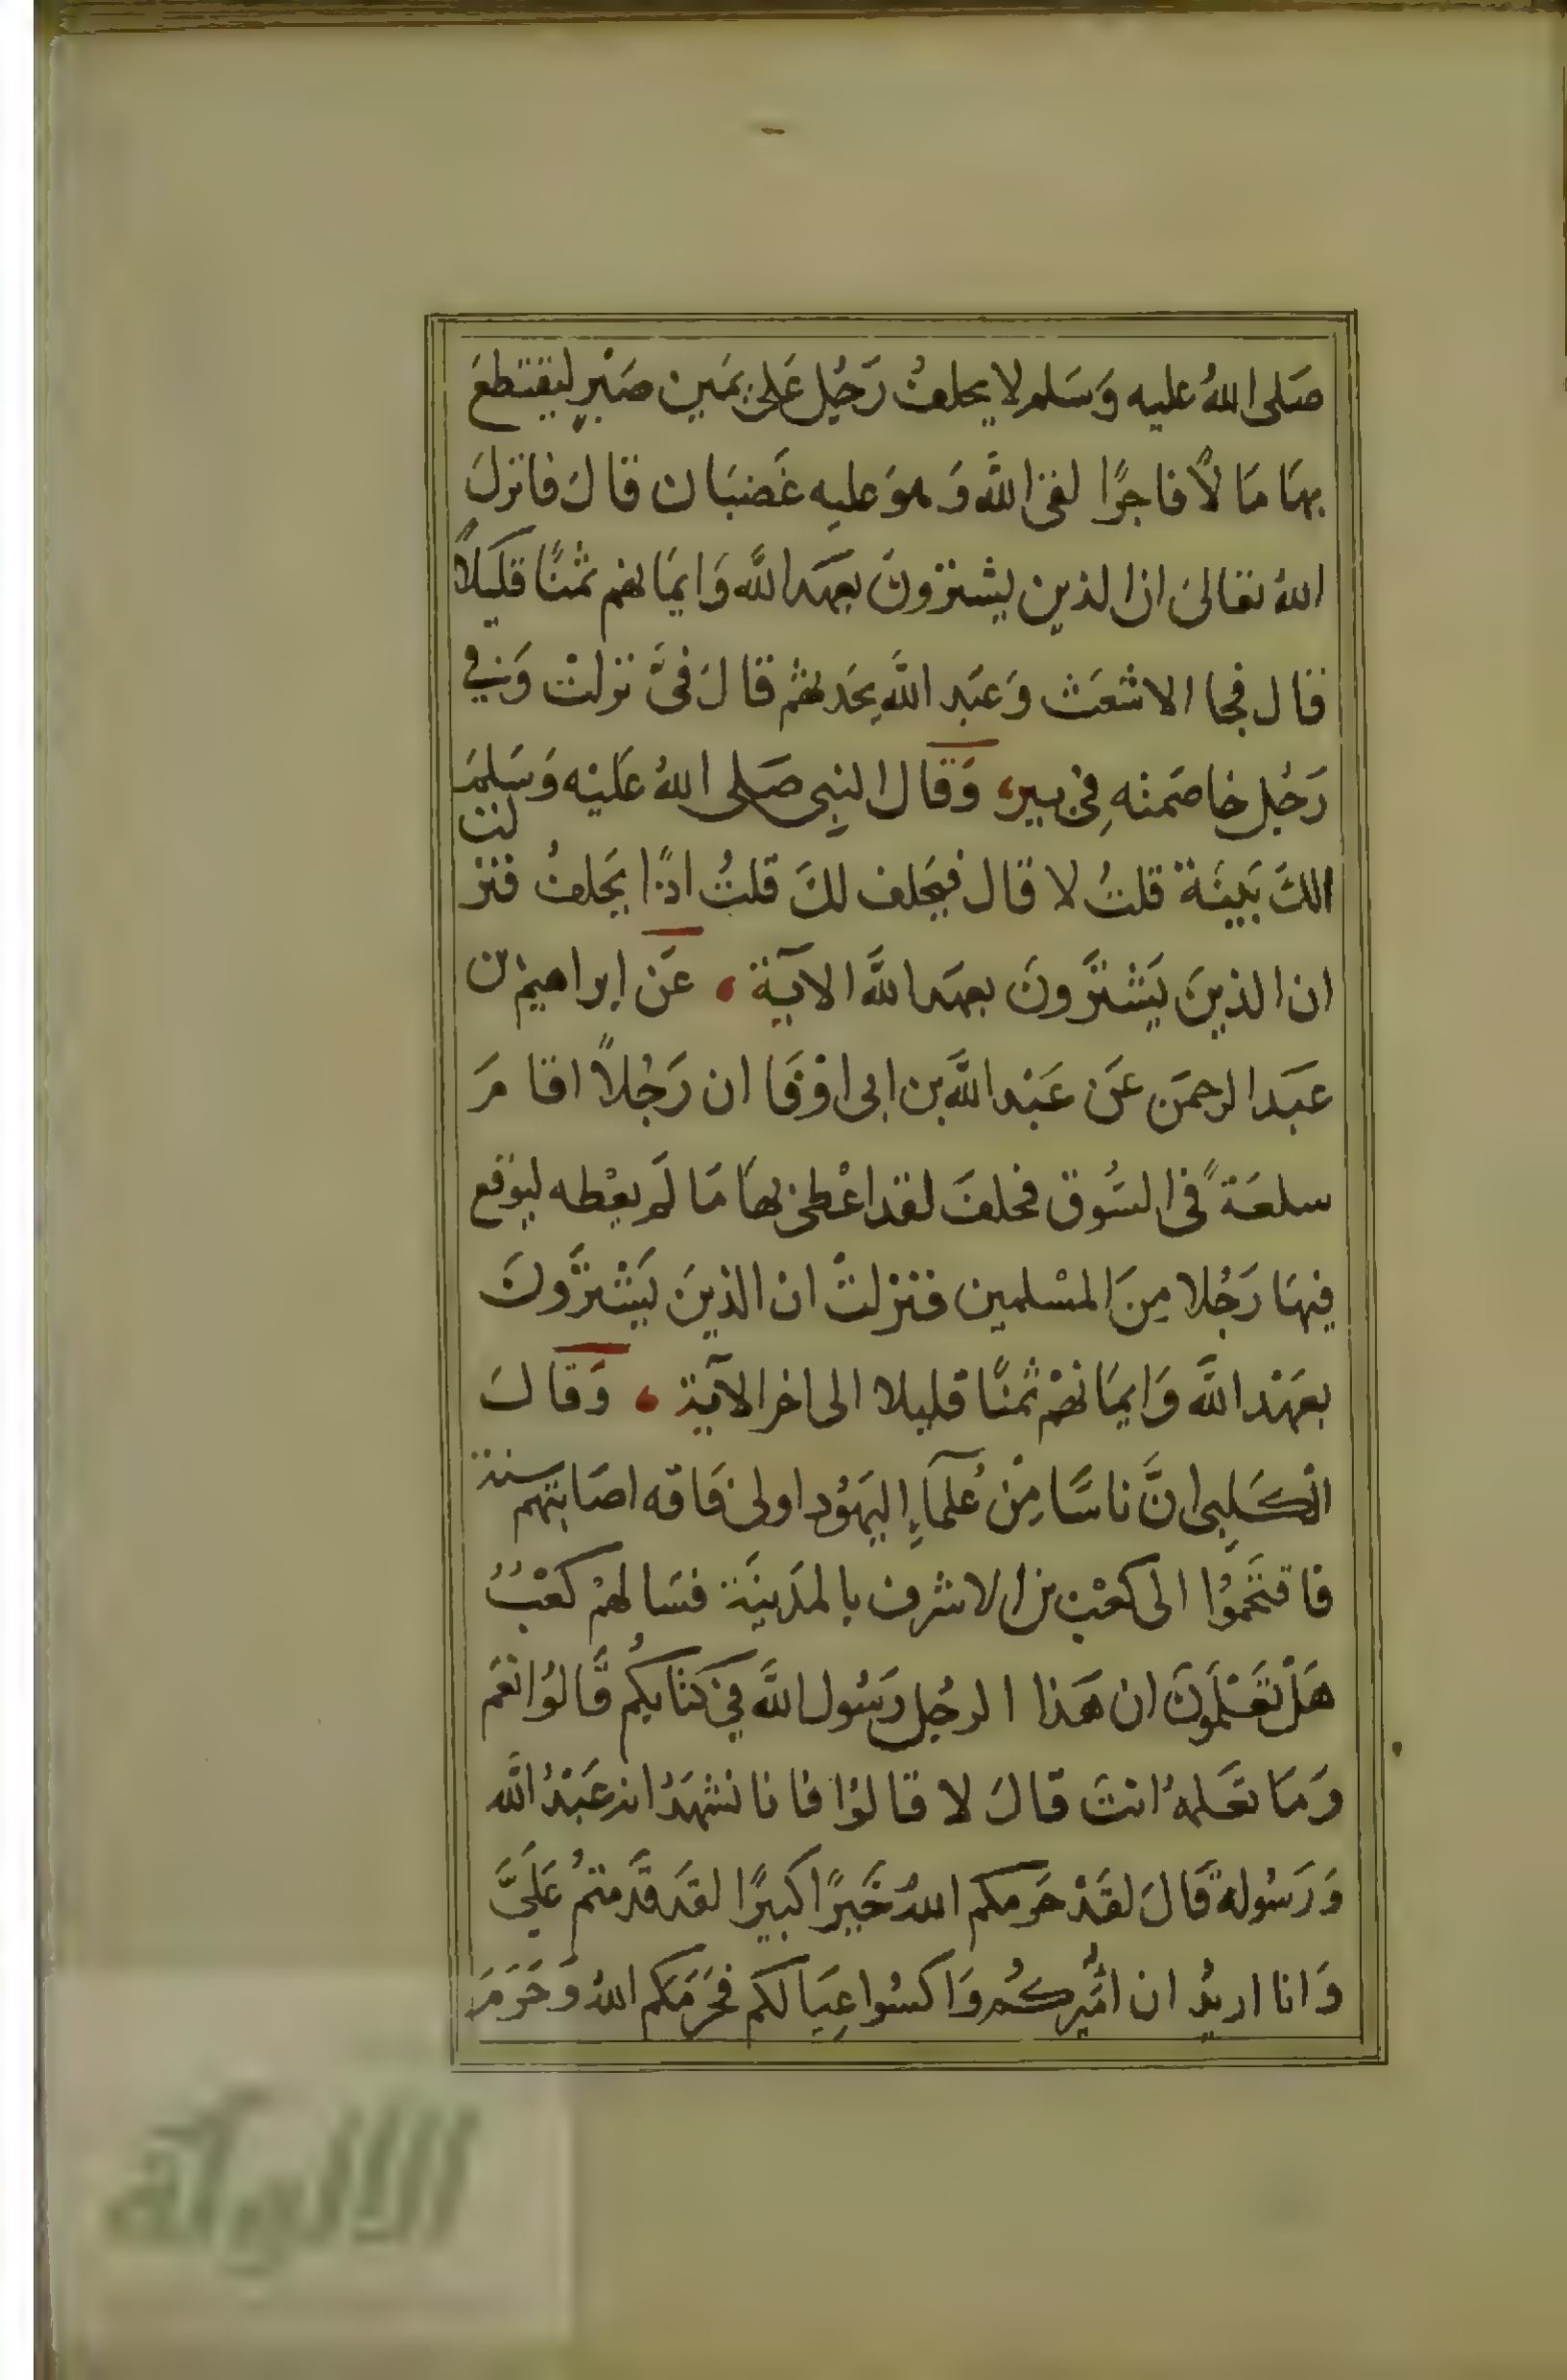 صَلى اللهُ عليه وَسَلم لا يحلفُ رَجُل عَلى يمَين صَبْرٍ ليقتطعَ
بهَا مَا لاً فاجرًا لقى اللهَ وَهوَ عليه غَضبَان قالَ فانزلَ
اللهُ تعَالىَ ان الذين يشترونَ بعهَد اللَّه وَايمَانهم ثمنًا قليَلاً
قال فجا الاشعَث وَعبَد اللَّه يحَدثهُم قالَ فىَّ نزلتْ وَفي
رَجُل خاصَمته فِى بير، وَقَال النبِى صَلى اللهُ عَليْه وَسَلمَ
الكَ بَينَة قلتُ لا قال فيَحلف لكَ قلتُ اذًا يَحلفُ فنزلت
ان الذينَ يَشترَّونَ بعهَد اللَّه الآية ، عَن ابراهيم بن
عبَد الرحمَن عَن عَبْد اللَّه بن ابى اوْفَا ان رَجُلاً اقامَ
سلعَةً فى السُّوق فحلفَ لقد اعْطى بهَا مَا لَم يعْطه ليوقع
فيهَا رَجُلا مِنَ المسْلمين فنزلتْ ان الذينَ يَشترَّونَ
بعَهْد اللَّه وَايمَانهمْ ثمنًا قليلا الى اخر الآية ، وَقالَ
الْكَلبِى انَّ ناسًا مِنْ عُلمآءِ اليهَوُد اولى فَاقه اصَابتهم سنة
فاقتحَمُوا الى كعْب بن الاشرف بالمدَينَة فسَالهمْ كعْبُ
هَلْ تعَْلَموُنَ ان هَذا الرجُل رَسُول اللَّه في كتابكُم قَالوُا نعَم
وَمَا تعَلمهُ انتَ قالَ لا قالوُا فانا نشهَدُ انه عَبْدُ اللَّه
وَرَسُوله قَالَ لقَدْ حَرمكم اللهُ خَيرًا كبيرًا لقد قَدمتمُ عَلىََّ
وَانا اريدُ ان اَميركُم وَاكسُوا عِيَالكم فحَرَمَكم اللهُ وَحَرَمَ